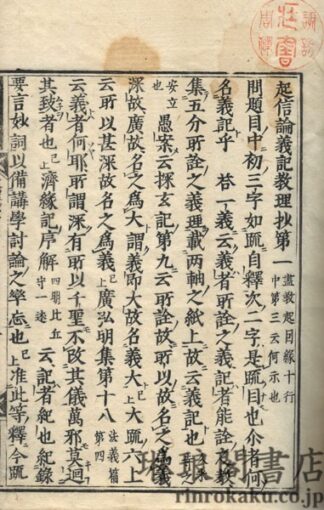 起信論義記教理抄第一 盡教起因緣十行
中第三云何示也
問題目中初三字如疏自釋次二字是疏目也介者何
名義記乎 答一義云義者所詮之義記者能詮
集五分所詮之義理載兩軸之紙上故云義記也
安立也 愚案云探玄記第九云所詮故所以故名之爲義
深故廣故名之爲大義即大故名義大 已上 大疏六上
云所以甚深故名之爲義 已上 廣弘明集第十八 法義篇
第四
云義者何耶所謂深有所以千聖不改其儀萬邪莫迴
其致者也 已上 濟緣記序解 四明比丘
守一述 云記者紀也紀錄
要言妙詞以備講學討論之
忘也 已上 准此等釋今疏
琳琅閣書店
rinrokaku.co.jp